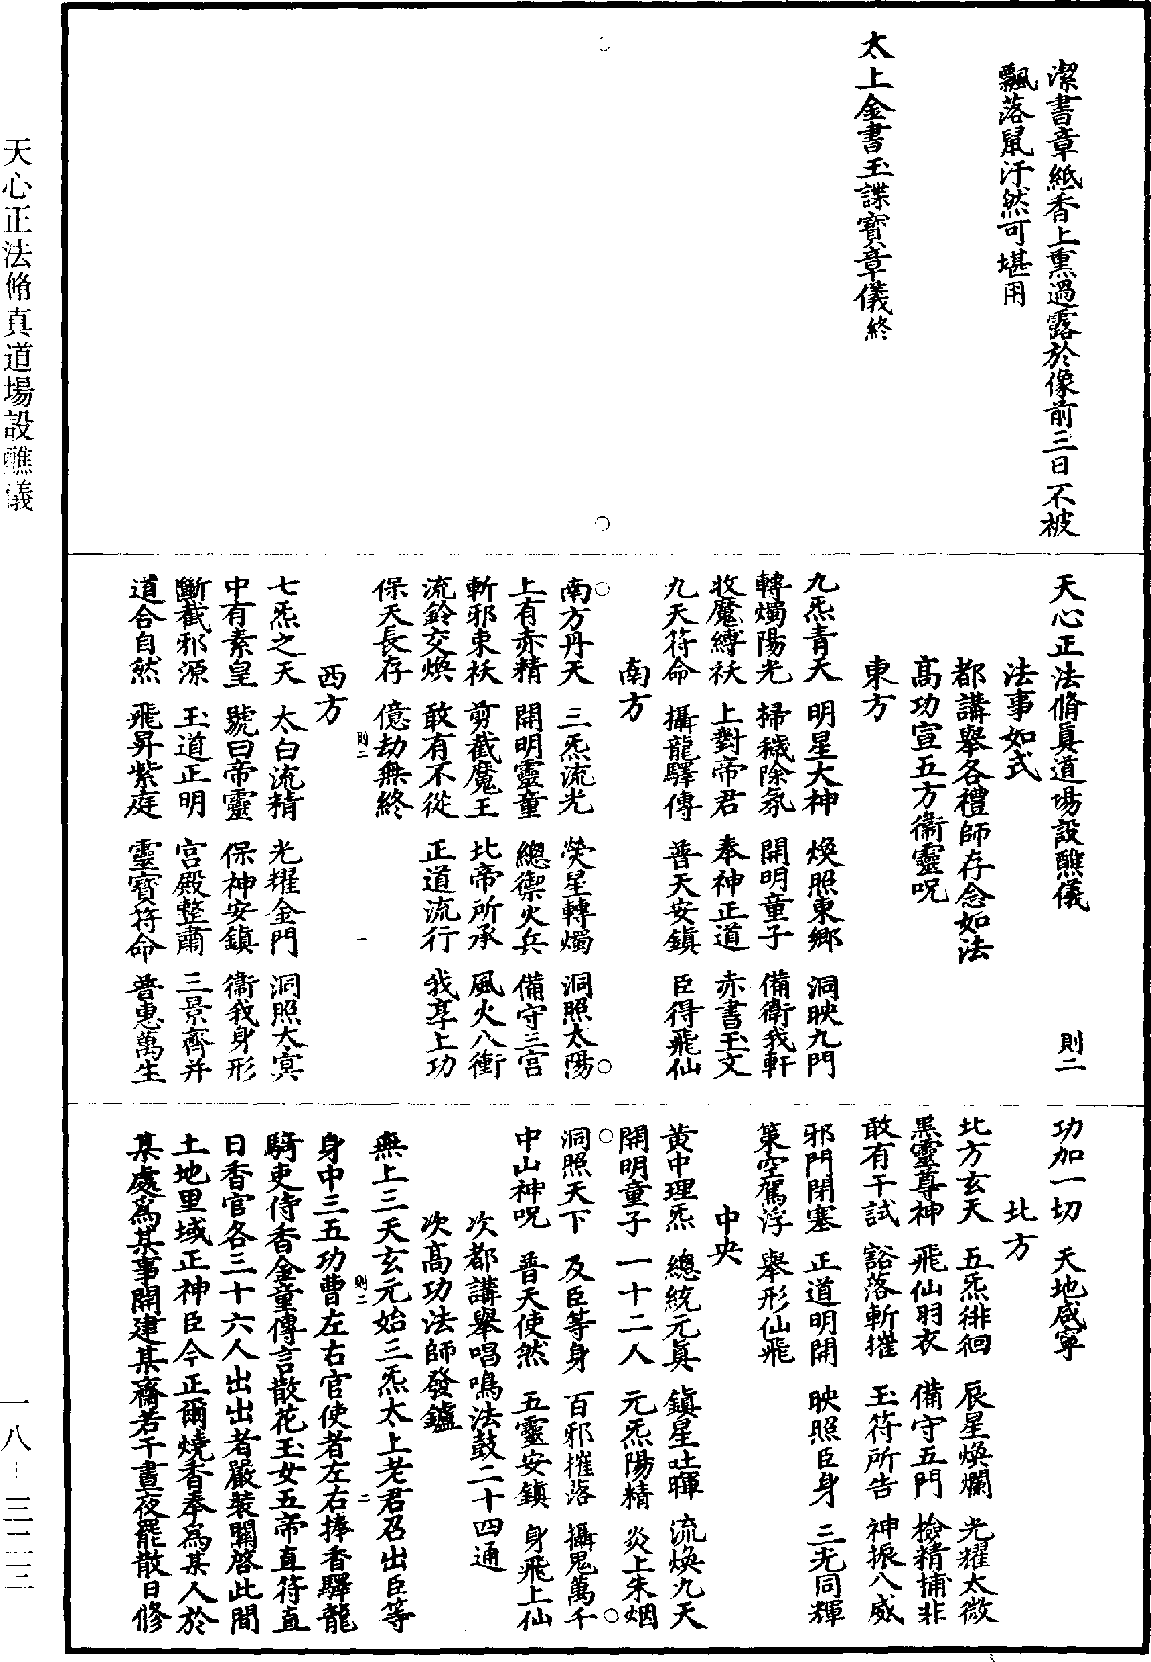 潔書章紙香上熏過露於像前三日不被
飄落鼠汙然可堪用
太上金書玉諜寶章儀終
天心正法脩真道場設醮儀 則二
法事如式
都講舉各禮師存念如法
高功宣五方衞靈呪
東方
九炁青天 明星大神 煥照東鄉 洞映九門
轉燭陽光 掃穢除氛 開明童子 備衛我軒
收魔縛祅 上對帝君 奉神正道 赤書玉文
九天符命 攝龍驛傳 普天安鎮 臣得飛仙
南方
南方丹天 三炁流光 熒星轉燭 洞照太陽
上有赤精 開明靈童 總禦火兵 備守三宮
斬邪束祅 剪截魔王 北帝所承 風火八衝
流鈴交煥 敢有不從 正道流行 我享上功
保天長存 億劫無終
西方
七炁之天 太白流精 光耀金門 洞照太冥
中有素皇 號曰帝靈 保神安鎮 衞我身形
斷截邪源 王道正明 宮殿整肅 三景齊并
道合自然 飛昇紫庭 靈寶符命 普惠萬生
則二
一
功加一切 天地咸寧
北方
北方玄天 五炁徘徊 辰星煥爛 光耀太微
黑靈尊神 飛仙羽衣 備守五門 檢精捕非
敢有干試 豁落斬摧 玉符所告 神振八威
邪門閉塞 正道明開 映照臣身 三光同輝
策空駕浮 舉形仙飛
中央
黃中理炁 總統元真 鎮星吐暉 流煥九天
開明童子 一十二人 元炁陽精 炎上朱烟
洞照天下 及臣等身 百邪摧落 攝鬼萬千
中山神呪 普天使然 五靈安鎮 身飛上仙
次都講舉唱鳴法鼓二十四通
次高功法師發鑪
無上三天玄元始三炁太上老君召出臣等
身中三五功曹左右官使者左右捧香驛龍
騎吏侍香金童傳言散花玉女五帝直符直
日香官各三十六人出出者嚴裝關啓此間
土地里域正神臣今正爾燒香奉爲某人於
某處爲某事開建某齋若干晝夜罷散日修
則二
二
天心正法脩真道場設醮儀
一八—三二三